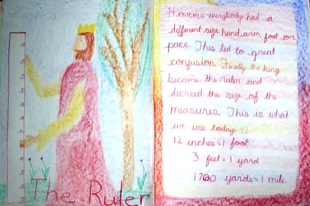 The Ruler
However everybody had a
different size hand, arm, foot, or
pace. This led to great
confusion. Finally the king
became the ruler and
decreed the size of the
measures. This is what
we use today
12 inches = 1 foot
3 feet = 1 yard
1760 yards = 1 mile